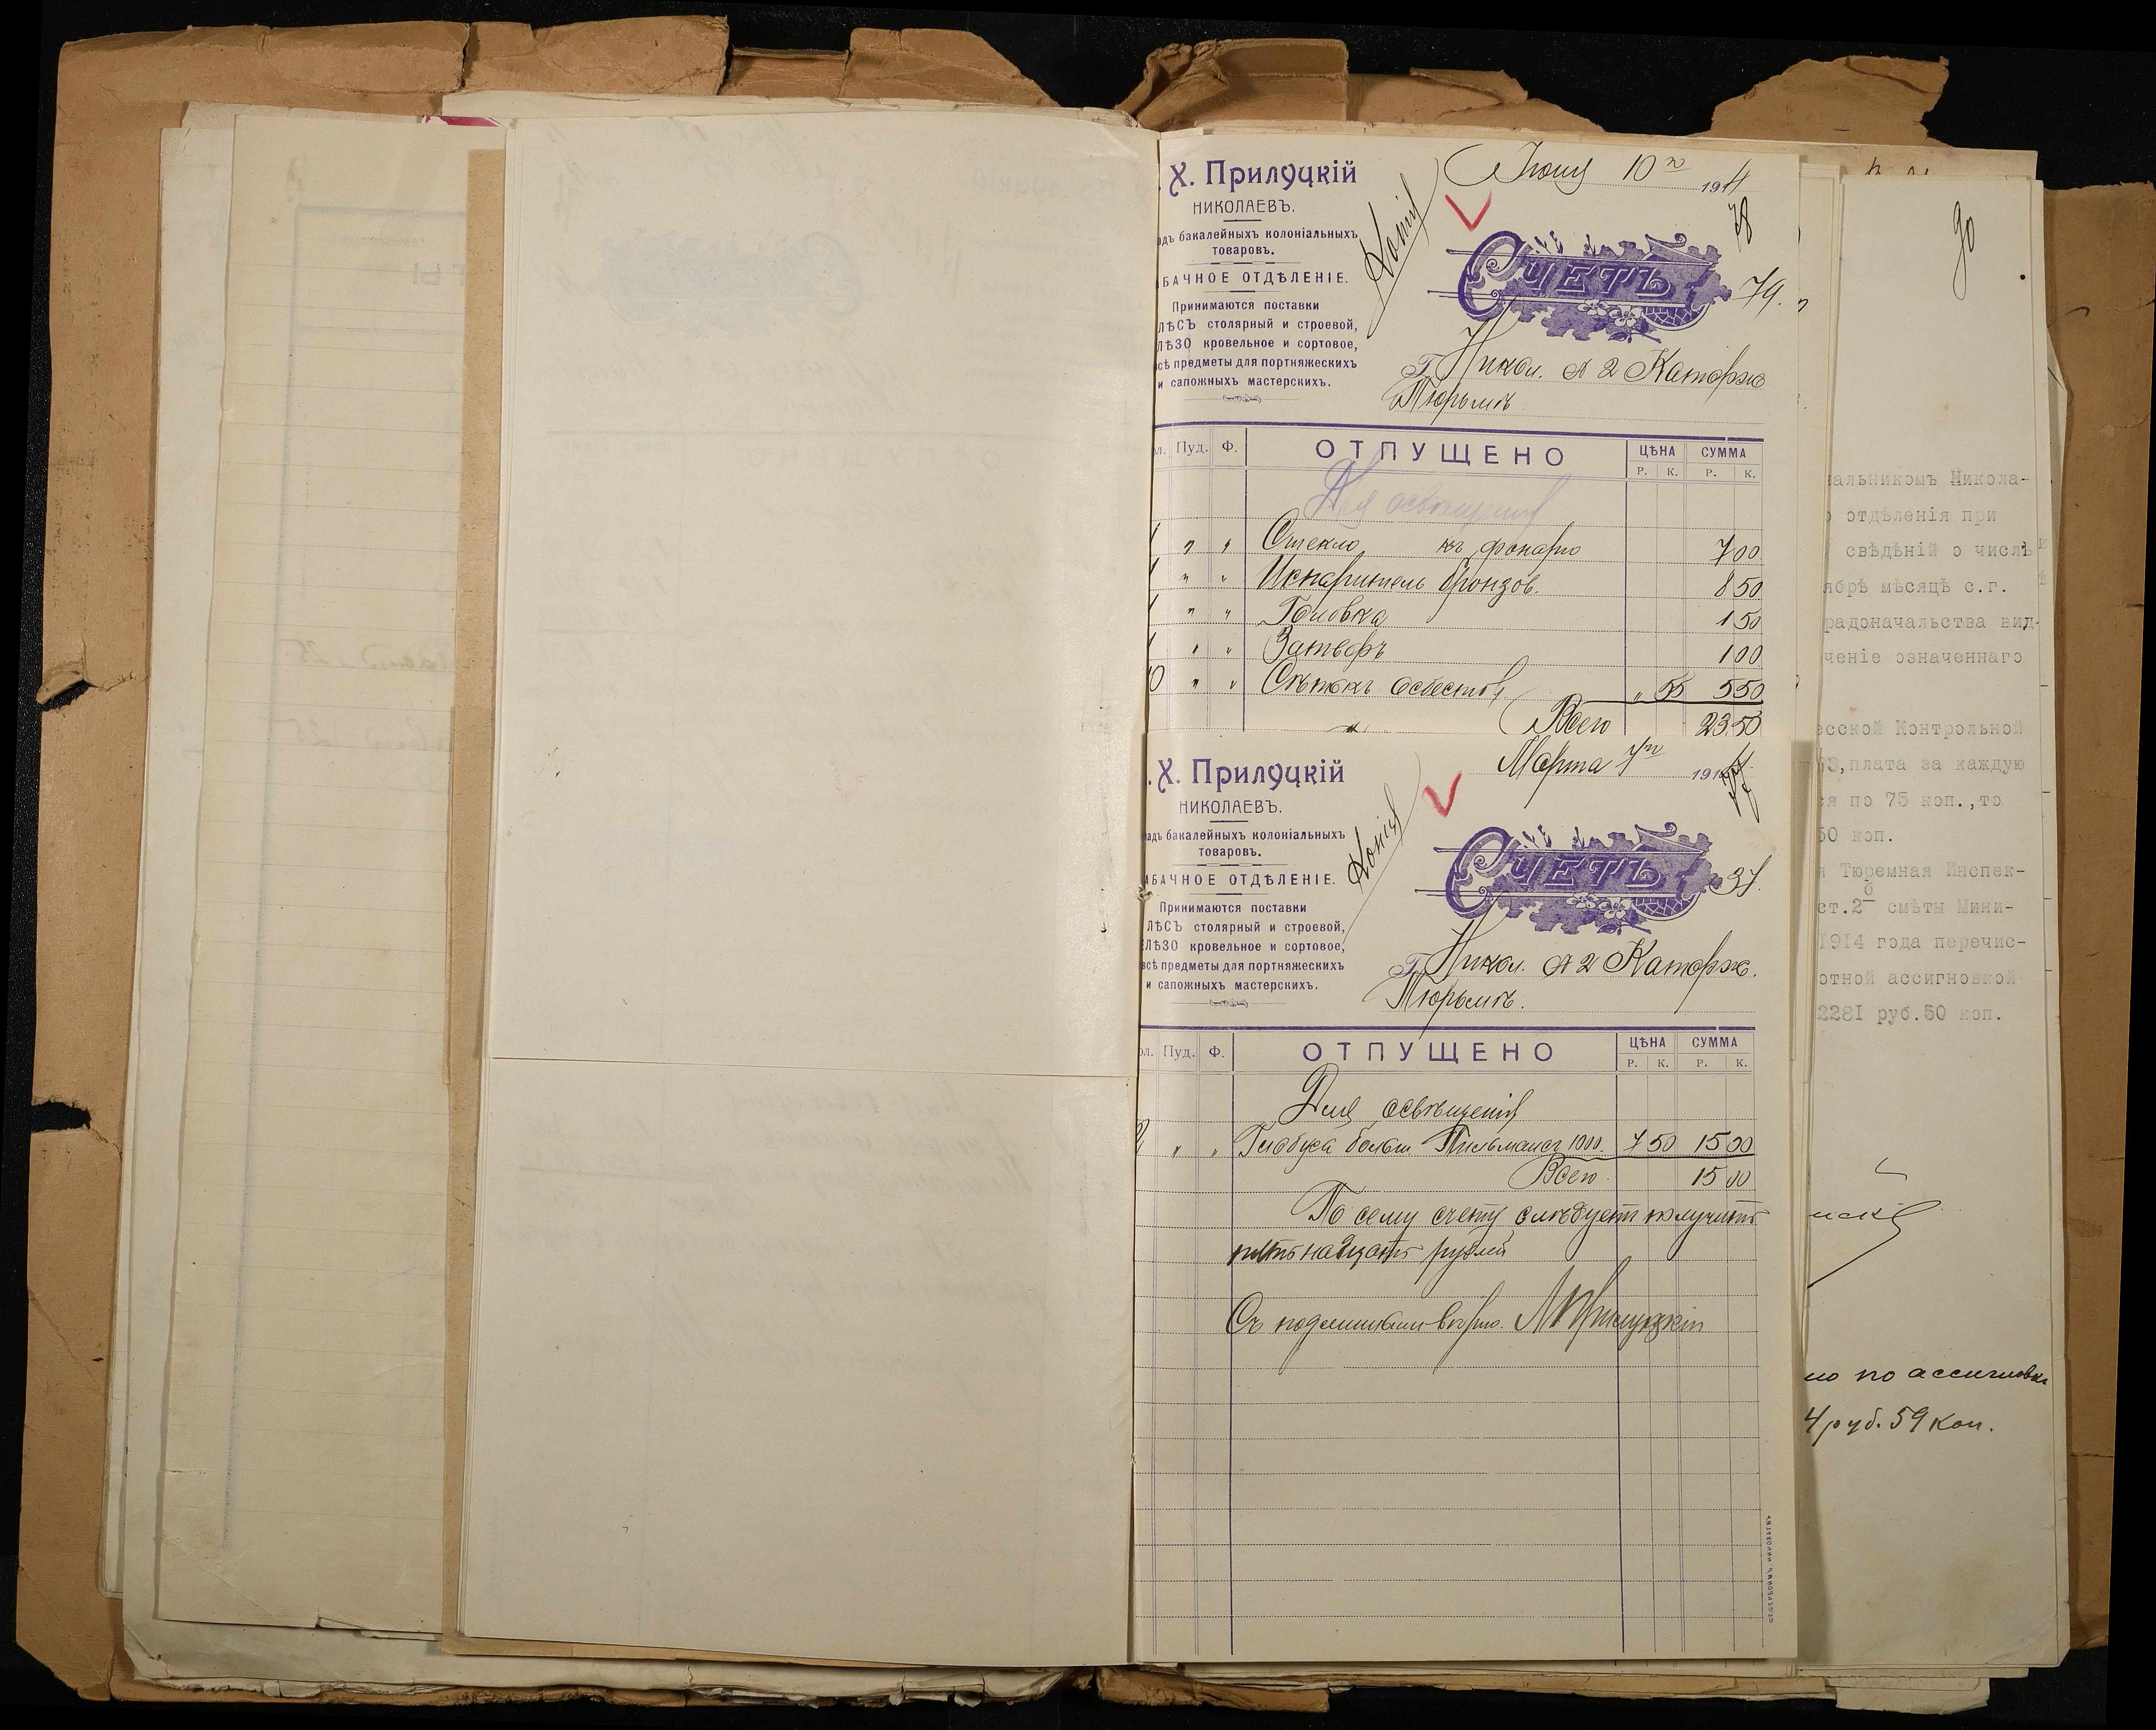 Х. Прилуцкій
НИКОЛАЕВЪ.
адъ бакалейныхъ колоніальныхъ
товаровъ.
БАЧНОЕ ОТДѢЛЕНІЕ.
Принимаются поставки
ЛѢСЪ столярный и строевой,
ЛѢЗО кровельное и сортовое,
сѣ предметы для портняжескихъ
и сапожныхъ мастерскихъ.
Копія
10 1914
78
СЧЕТЪ
79.
Г. Никол. № 2 Каторж
Тюрьмѣ
ол. Пуд. Ф. ОТПУЩЕНО ЦѢНА СУММА
Р. К. Р. К.
Для освѣщенія
1 " " Стекло къ фонарю 7 00
1 " " Испаритель бронзов. 8 50
1 " " Головка 1 50
1 " " Затворъ 1 00
10 " " Сѣтокъ асбестов. " 55 5 50
Всего 23 50
Х. Прилуцкій
НИКОЛАЕВЪ.
адъ бакалейныхъ колоніальныхъ
товаровъ.
АБАЧНОЕ ОТДѢЛЕНІЕ.
Принимаются поставки
ЛѢСЪ столярный и строевой,
ЕЛѢЗО кровельное и сортовое,
всѣ предметы для портняжескихъ
и сапожныхъ мастерскихъ.
Копія
Марта 7 191
СЧЕТЪ
37.
Г. Никол. № 2 Каторж.
Тюрьмѣ.
ол. Пуд. Ф. ОТПУЩЕНО ЦѢНА СУММА
Р. К. Р. К.
Для освѣщенія
2 " " Глобуса больш. 1000. 7 50 15 00
Всего 15 00
По сему счету слѣдуетъ получить
пятнадцать рублей
Съ подлиннымъ вѣрно. Прилуцкій
НИКОЛАЕВЪ
90
чальникомъ Никола-
о отдѣленія при
свѣдѣній о числѣ
ябрѣ мѣсяцѣ с.г.
радоначальства вид-
ченіе означеннаго
есской Контрольной
13,плата за каждую
ся по 75 коп.,то
50 коп.
я Тюремная Инспек-
ст.2б смѣты Мини-
1914 года перечис-
отной ассигновкой
2281 руб.50 коп.
но по ассигновкѣ
4 руб. 59 коп.